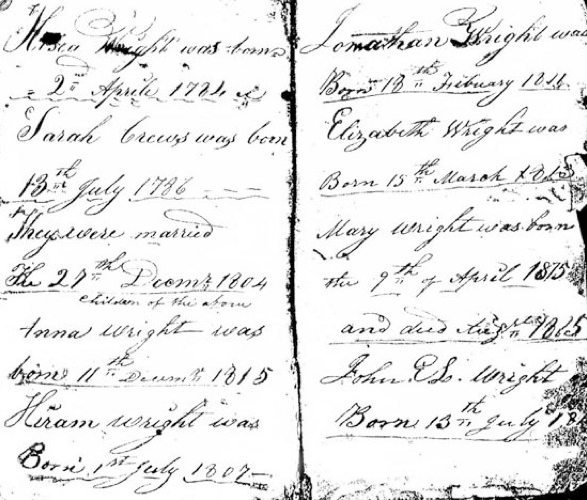 Hosea Wright was born
2nd Aprile 1784
Sarah Crews was born
13th July 1786
They were married
The 27th Decmr 1804
Children of the above
Anna Wright was
born 11th Decemr 1815
Hiram Wright was
Born 1st July 1807
Jonathan Wright was
Born 18th Febuary
Elizabeth Wright was
Born 15th March
Mary Wright was born
the 9th of April 1815
and died
John Wright
Born 13th July